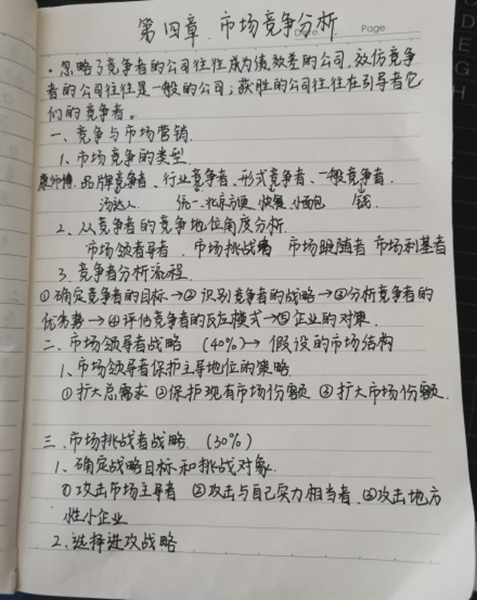 第四章 市场竞争分析
Date Page.
·忽略了竞争者的公司往往成为绩效差的公司,效仿竞争
者的公司往往是一般的公司;获胜的公司往往在引导者它
们的竞争者。
一、竞争与市场营销
1、市场竞争的类型
康师傅. 品牌竞争者、行业竞争者、形式竞争者、一般竞争者.
汤达人. 统一、北京方便. 快餐、小面包 钱.
2、从竞争者的竞争地位角度分析.
市场领者导者、市场挑战者 市场跟随者 市场利基者
3、竞争者分析流程.
①确定竞争者的目标→②识别竞争者的战略→③分析竞争者的
优劣势→④评估竞争者的反应模式→⑤企业的对策.
二、市场领导者战略 (40%)→假设的市场结构
1、市场领导者保护主导地位的策略
①扩大总需求 ②保护现有市场份额 ③扩大市场份额.
三、市场挑战者战略. (30%)
1、确定战略目标和挑战对象.
①攻击市场主导者 ②攻击与自己实力相当者. ③攻击地方
性小企业
2、选择进攻战略